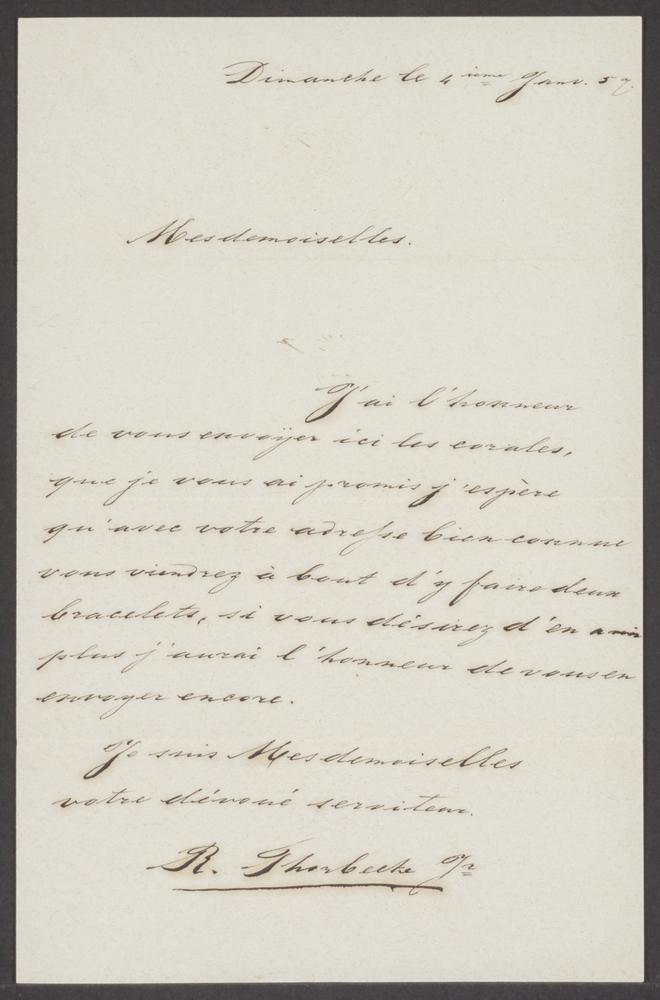 Dimanche le 4ième Janv. 57.
Mesdemoiselles.
J'ai l'honneur
de vous envoÿer ici les corales,
que je vous ai promis j'espère
qu'avec votre adresse bien connue
vous viendrez à bout d'y faire deux
bracelets, si vous désirez d'en avoir
plus j'aurai l'honneur de vous en
envoyer encore.
Je suis Mesdemoiselles
votre dévoué serviteur.
R. Thorbecke Jr